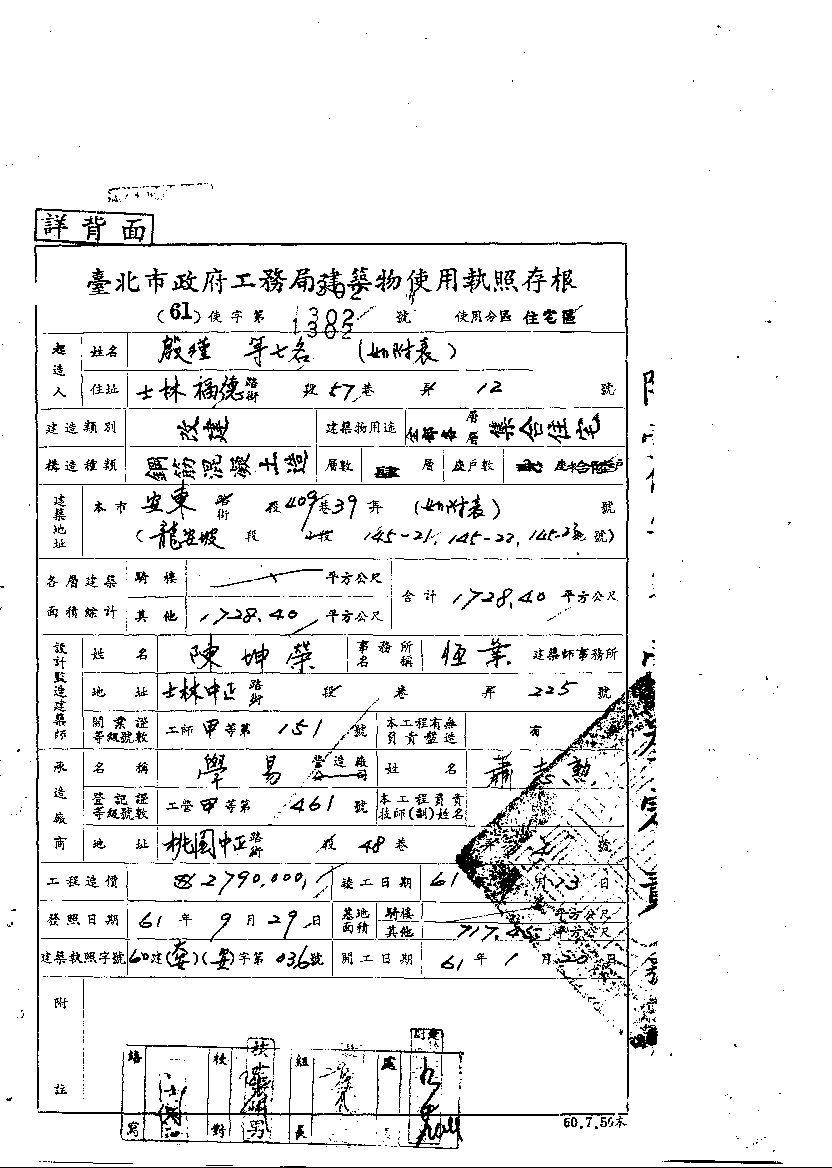 詳背面
臺北市政府工務局建築物使用執照存根
(61)使字第 1302 號 使用分區 住宅區
起造人 姓名 殷 等七名 (如附表)
住址 士林福德路街 段57巷 弄12號
建造類別 改建 建築物用途 全部各層層集合住宅
構造種類 鋼筋混凝土造 層數 肆層 座戶數 座拾 戶
建築地址 本市安東路街 段409巷39弄 (如附表) 號
(龍安坡段 小段 145-21,145-22,145-23地號)
各層建築面積綜計 騎樓 平方公尺 合計 1728.40 平方公尺
其他 1728.40 平方公尺
設計監造建築師 姓名 陳坤榮 事務所名稱 恆業 建築師事務所
地址 士林中正路街 段 巷 弄 225 號
開業證等級號數 工師甲等第 151 號 本工程有無負責監造 有
承造廠商 名稱 學易 營造廠公司 姓名 蕭志勲
登記證等級號數 工營甲等第 461 號 本工程負責技師(副)姓名
地址 桃園中正路街 段 48 巷 號
工程造價 2790,000 竣工日期 61 月13日
發照日期 61年9月29日 基地面積 騎樓 平方公尺
其他 717. 平方公尺
建築執照字號 60建( )(安)字第 036號 開工日期 61年1月20日
附註
繕寫 校對 組長 處
60.7.50本